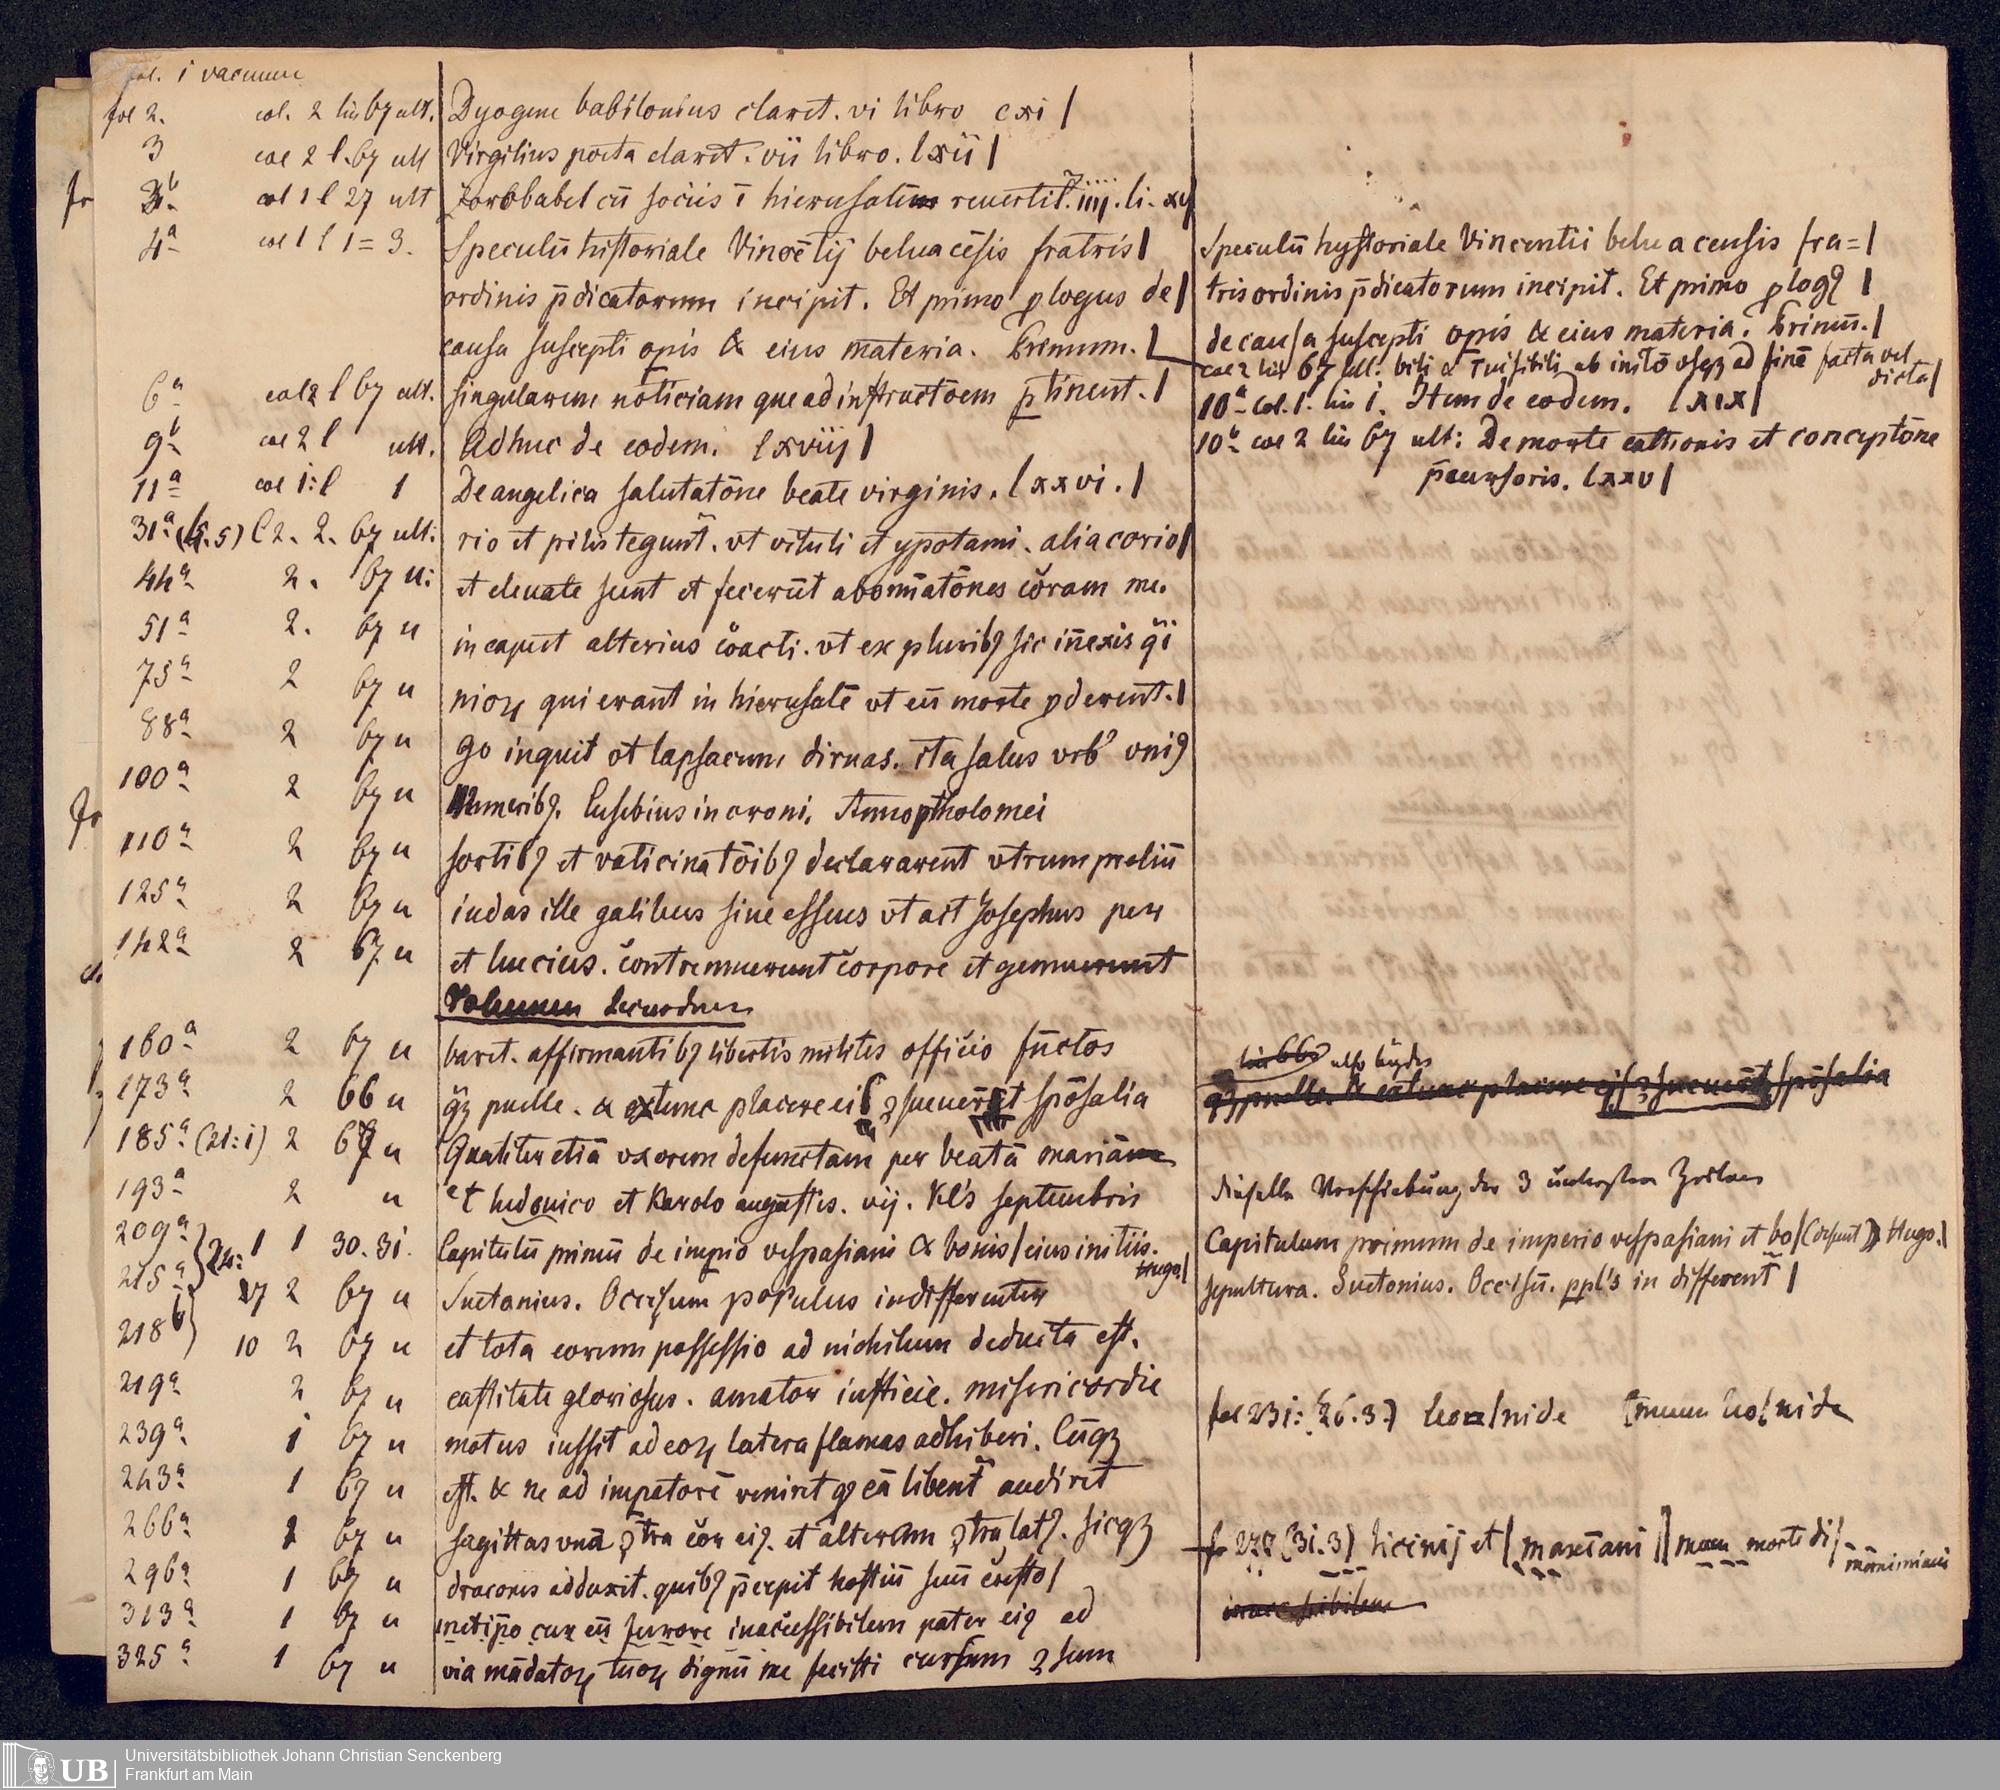 fol. 1 vacuum
fol 2. col. 2 lin 67 ult. Dyogene babilonius claret. vi libro cxi |
3 col 2 l. 67 ult Virgilius poeta claret. vii libro. lxii |
3b col 1 l 27 ult Zorobabel cū sociis ī hierusalem reuertit. iiij. li. xv
4a col 1 l 1 = 3. Speculū historiale Vincētij beluacēsis fratris |
ordinis p̄dicatorum incipit. Et primo ꝓlogus de |
causa suscepti op̄is & eius materia. Primum. |
6a col 2 l 67 ult. singularem noticiam que ad instructōem ꝑtinent. |
9b col 2 l ult. Adhuc de eodem. lxviij |
11a col 1: l 1 De angelica salutatōne beate virginis. lxxvi. |
31a (4. 5) C 2. 2. 67 ult: rio et pilis tegunt̄. vt vituli et ypotami. alia corio |
44a 2. 67 u: et eleuate sunt et fecerūt abomīatōnes coram me.
51a 2. 67 u in caput alterius coacti. vt ex pluribꝫ sic īnexis q̄i
75a 2 67 u nioꝝ qui erant in hierusalē vt eū morte ꝑderent. |
88a 2 67 u go inquit vt lapsacum diruas. ita salus vrbꝰ vniꝰ
100a 2 67 u Numeribꝫ. Eusebius in croni. Anno ptholomei
110a 2 67 u sortibꝫ et vaticinatōibꝫ declararent vtrum preliū
125a 2 67 u iudas ille galileus siue esseus vt ait Josephus per
142a 2 67 u et lucius. contremuerunt corpore et gemuerunt
Volumen secundum
160a 2 67 u baret. affirmantibꝫ libertis milites officio fūctos
173a 2 66 u qꝫ puelle. & extunc placere ei ꝯsueuerūt spōsalia
185a (21: 1) 2 67 u Qualiter etiā vxorem defunctam per beatā mariam
193a 2 u et ludouico et Karolo augustis. vij. Kl's septembris
209a 24: 1 1 30. 31. Capitulū primū de impio vespasiani & bonis | eius initiis. Hugo. |
215a 27 2 67 u Suetonius. Occisum populus indifferenter
218b 10 2 67 u et tota eorum possessio ad nichilum deducta est.
219a 2 67 u castitate gloriosus. amator iusticie. misericordie
239a 1 67 u motus iussit ad eoꝝ latera flamas adhiberi. Cūqꝫ
243a 1 67 u est. & ne ad imperatorē veniret qꝫ eā libent̄ audiret
266a 1 67 u sagittas vna ꝯtra cor eiꝰ. et alteram ꝯtra latꝰ. sicqꝫ
296a 1 67 u dracones adduxit. quibꝫ p̄cepit hostiū suū
313a 1 67 u furore inaccessibilem pater eiꝰ ad
325a 1 67 u via mādatoꝝ tuoꝝ dignū me fecisti cursum ꝯsum
Speculū hystoriale Vincentii beluacensis fra= |
tris ordinis p̄dicatorum incipit. Et primo ꝓlogꝰ |
de causa suscepti op̄is & eius materia. Primū. |
col 2 lin 67 ult: bili & ī uisibili ab initō vsqꝫ ad finē facta vel
dicta |
10a Col. 1. lin 1. Item de eodem. lxix |
10b col 2 lin 67 ult: De morte catthonis et conceptōne
p̄cursoris. lxxv |
dieselbe Verschiebung der 3 untersten Zeilen
Capitulum primum de imperio vespasiani et bo | (desunt) Hugo. |
sepultura. Suetonius. Occisū. ppl's in different̄ |
fol 231: (26. 3)
(31. 3) licinij et | maxīani | morte di |